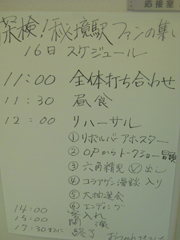 探検!秘境駅ファンの集い
16日 スケジュール
11:00 全体打ち合わせ
11:30 昼食
12:00 リハーサル
①リボルバーアホスター
②OPからトークショー
③六角精児 出し
④コラアゲン 入り
⑤大抽選会
⑥エンディング
14:00 客入れ
15:00 開演
17:30 終了